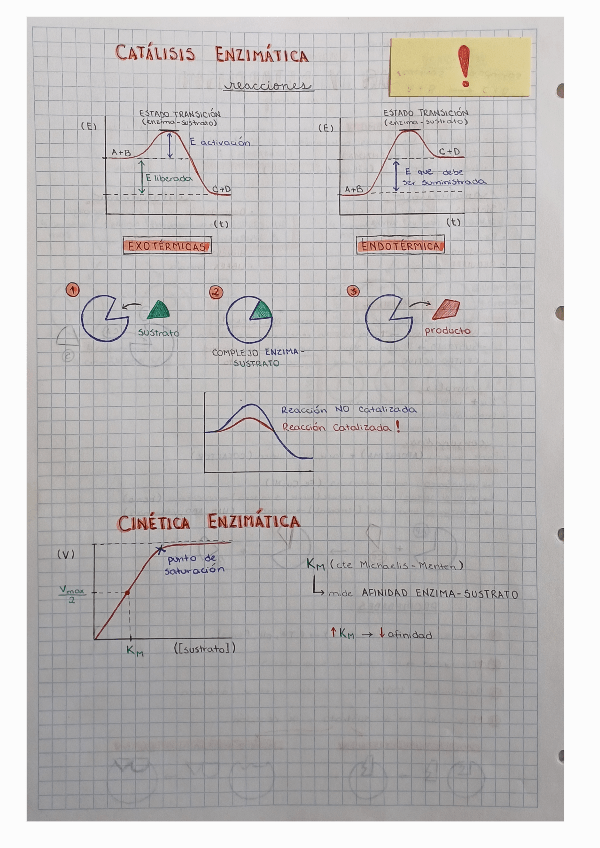 CATÁLISIS ENZIMÁTICA
!
reacciones
ESTADO TRANSICIÓN
(enzima-sustrato)
(E)
A+B
E activación
E liberada
C+D
(t)
EXOTÉRMICAS
ESTADO TRANSICIÓN
(enzima-sustrato)
(E)
C+D
E que debe
ser suministrada
A+B
(t)
ENDOTÉRMICA
1
sustrato
2
COMPLEJO ENZIMA-
SUSTRATO
3
producto
Reacción NO catalizada
Reacción catalizada!
CINÉTICA ENZIMÁTICA
(V)
punto de
saturación
Vmax
2
KM
([sustrato])
KM (cte Michaelis-Menten)
↳ mide AFINIDAD ENZIMA-SUSTRATO
↑KM → ↓afinidad